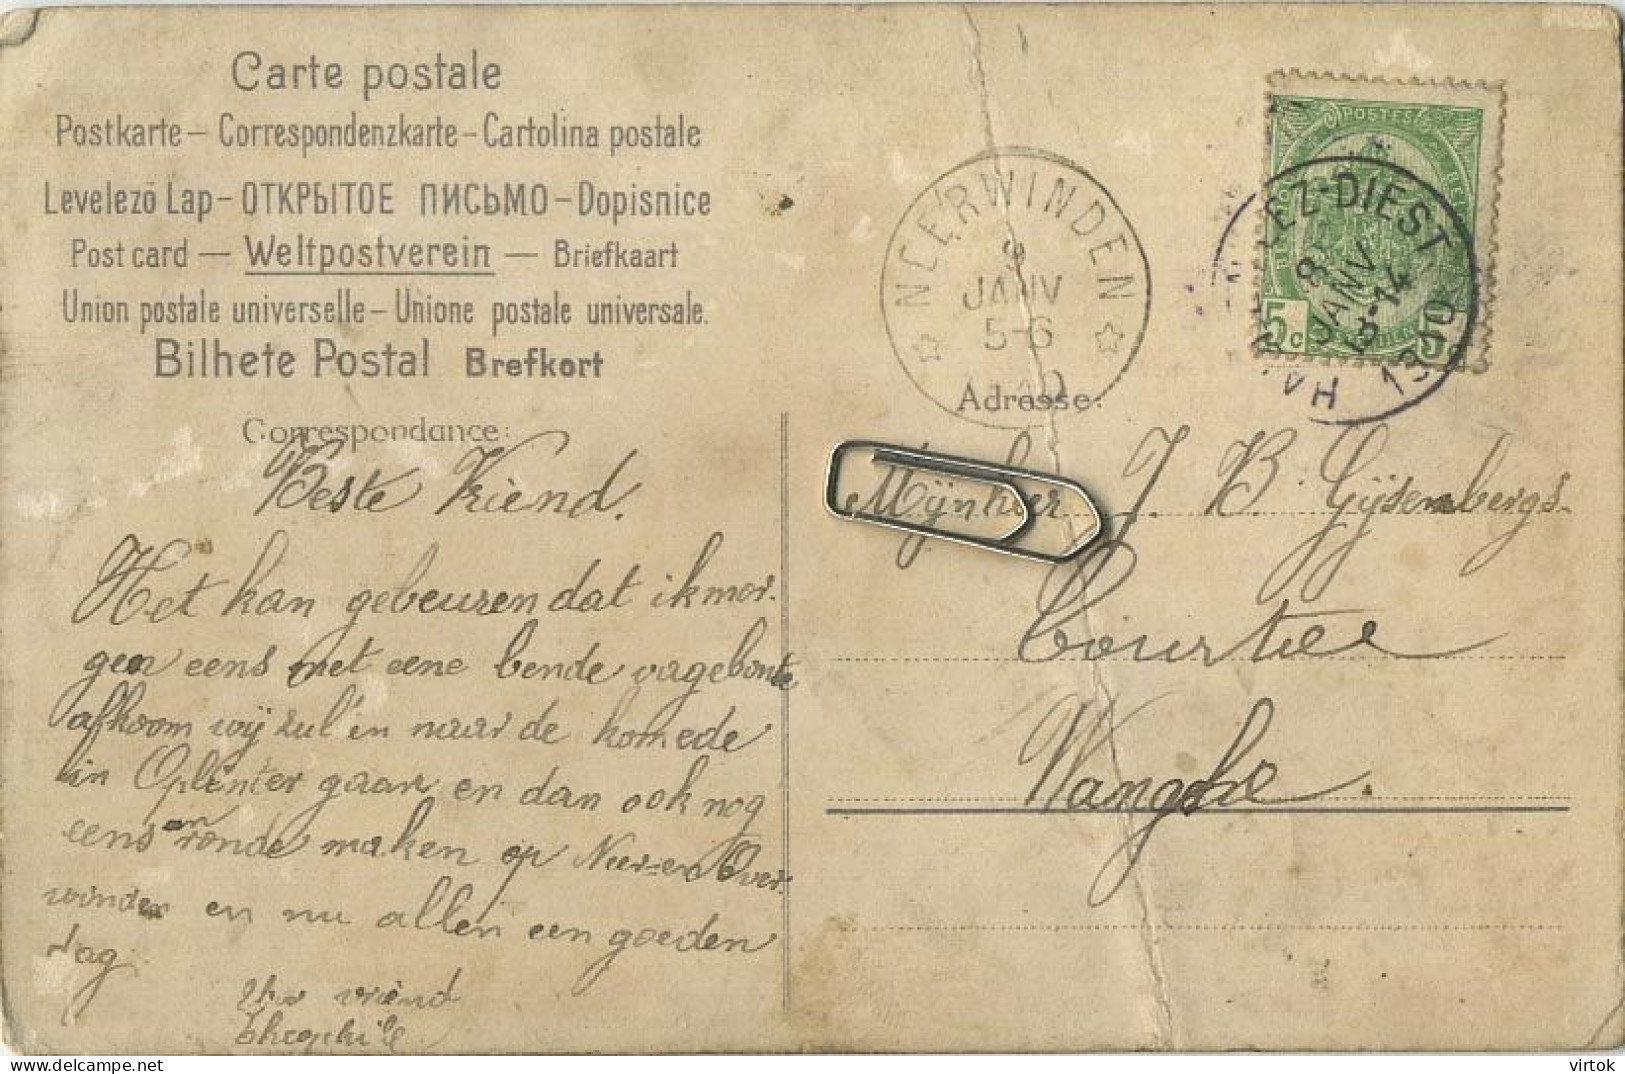 Carte postale
Postkarte – Correspondenzkarte – Cartolina postale
Levelezö Lap – ОТКРЫТОЕ ПИСЬМО – Dopisnice
Post card — Weltpostverein — Briefkaart
Union postale universelle – Unione postale universale.
Bilhete Postal Brefkort
Correspondance:
Beste Vriend.
Het kan gebeuren dat ik mor-
gen eens met eene bende vagebonte
afkoom wij zul'en naar de komede
in Oplinter gaan en dan ook nog
eens en ronde maken op Neer-en Over-
winden en nu allen een goeden
dag.
Uw vriend
Theophile
NEERWINDEN
9
JANV
5-6
POSTES
5c 5c
LEZ-DIEST
8
JANV
13-14
1910
HA
Adresse:
Mijnheer J. B. Gijsenbergs
Courtee
Wanghe.
virtok